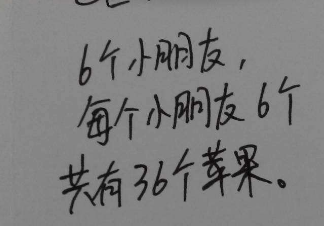 6个小朋友，
每个小朋友6个
共有36个苹果。